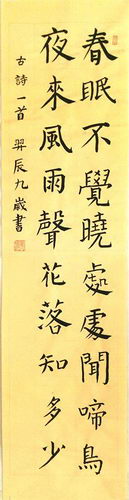 春眠不覺曉處處聞啼鳥
夜來風雨聲花落知多少
古詩一首 羿辰九歲書